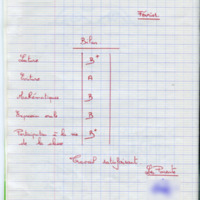 Février
Bilan
Lecture B+
Ecriture A
Mathématiques B
Expression orale B
Participation à la vie B+
de la classe
Travail satisfaisant
Les Parents